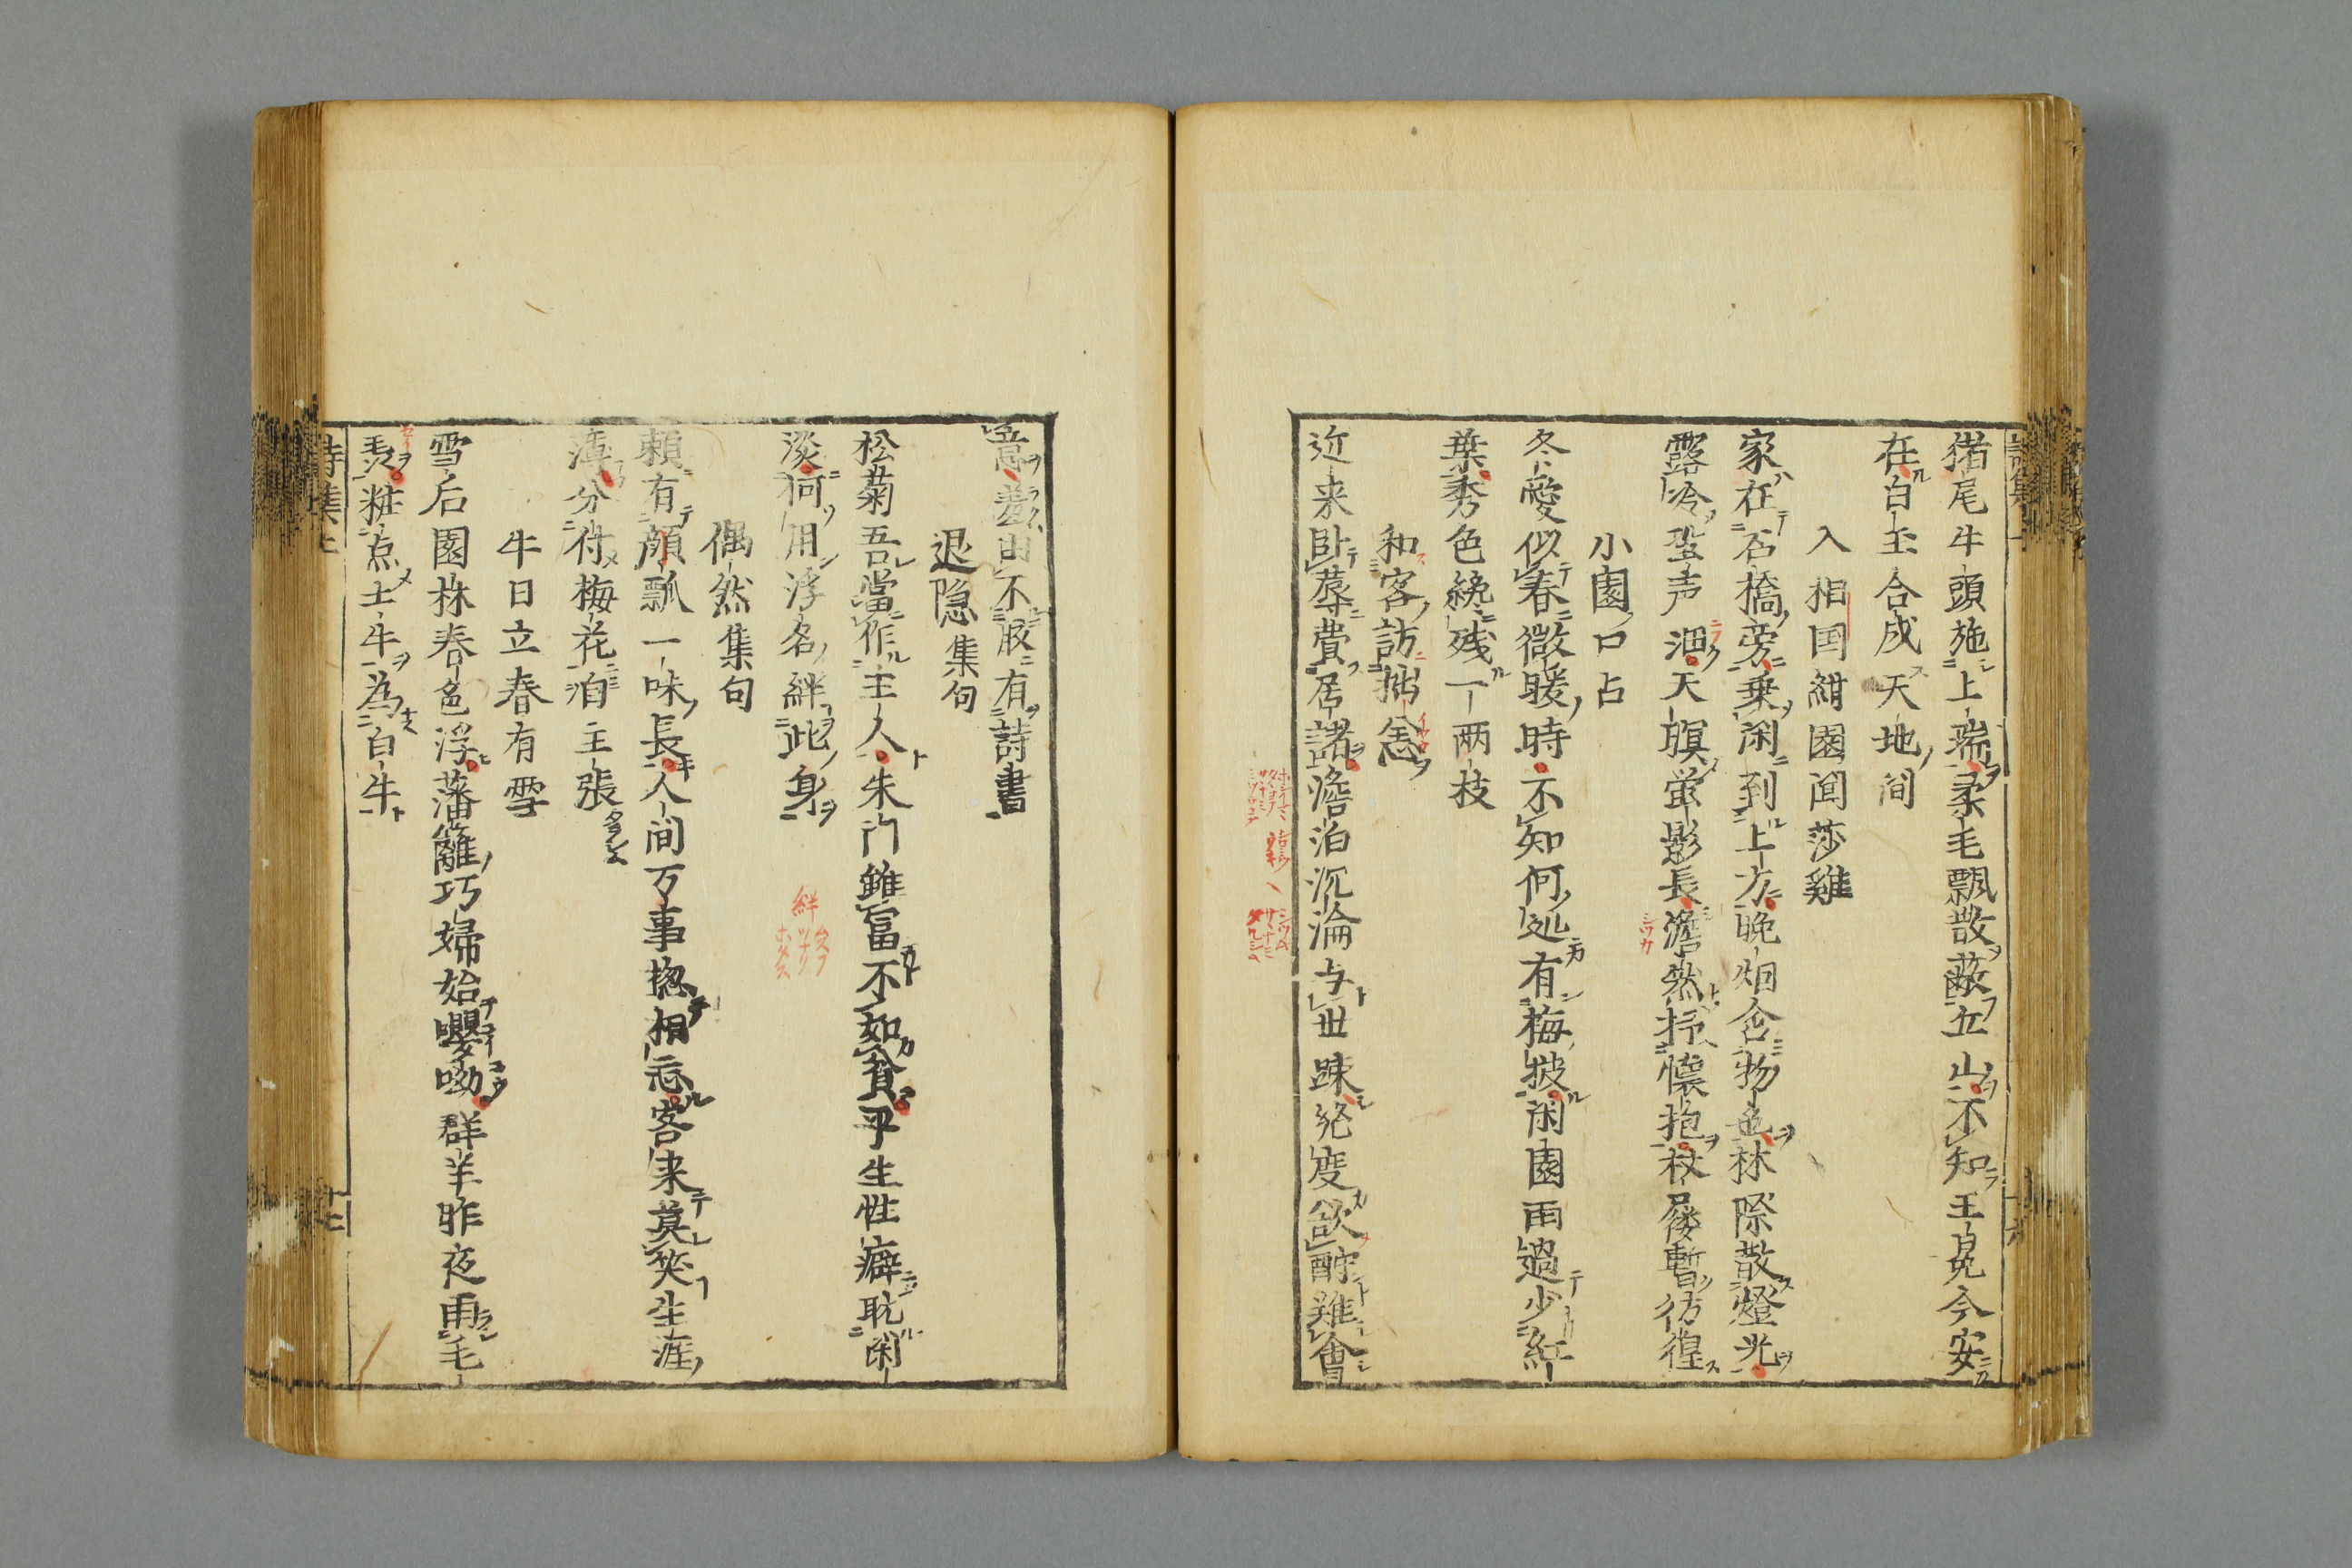 猪尾牛頭施上瑞柔毛飄散蔽丘山不知王免今安
在白玉合成天地間
入相国紺園聞莎雞
家在石橋旁乗閑到上方晩烟含物色林際散燈光
露冷蛩声沺天暝蛍影長澹然抒懐抱杖屨暫彷徨
小園口占
冬愛似春微暖時不知何処有梅披閑園雨過少紅
葉秀色纔残一両枝
和客訪拙恙
近来臥蓐費居諸澹泊沉淪与世疎絶度欲酧難會
意夢由不叚有詩書
退隠集句
松菊吾當作主人朱門雖冨不如貧平生性癖耽閑
淡何用浮名絆此身
偶然集句
頼有顔瓢一味長人間万事揔相忘客来莫笑生涯
薄分付梅花泊主張
牛日立春有雪
雪后園株春色浮藩籬巧婦始嚶呦群羊昨夜雨毛
粧点土牛為白牛
詩集上